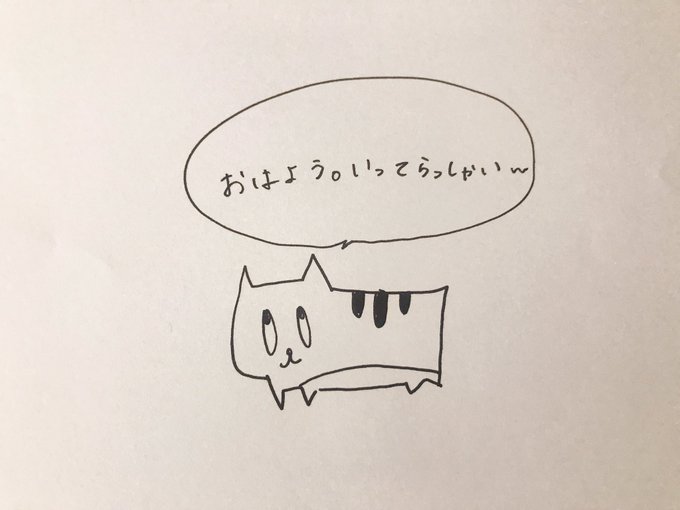 おはよう。いってらっしゃい〜